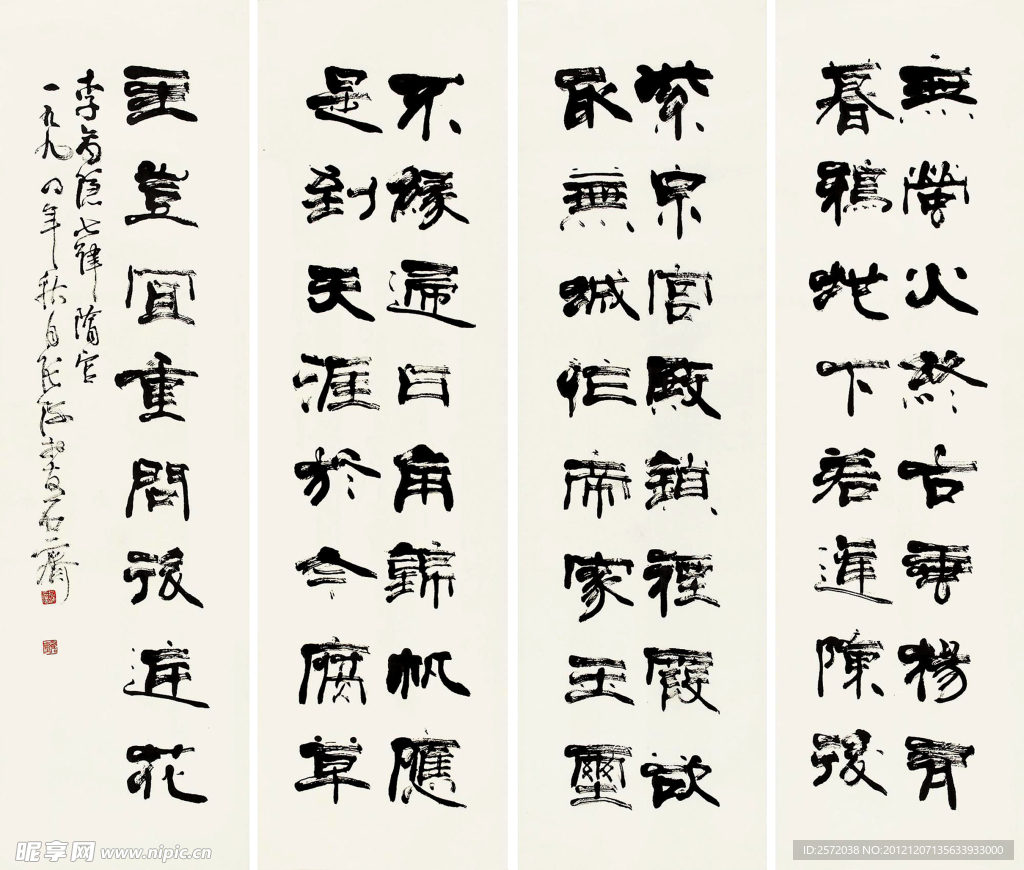 紫泉宮殿鎖煙霞欲
取蕪城作帝家玉璽
不緣歸日角錦帆應
是到天涯於今腐草
無螢火終古垂楊有
暮鴉地下若逢陳後
主豈宜重問後庭花
李商隱七律隋宮
一九九四年秋月石齊
昵享网 www.nipic.cn
ID:2572038 NO:20121207135633933000